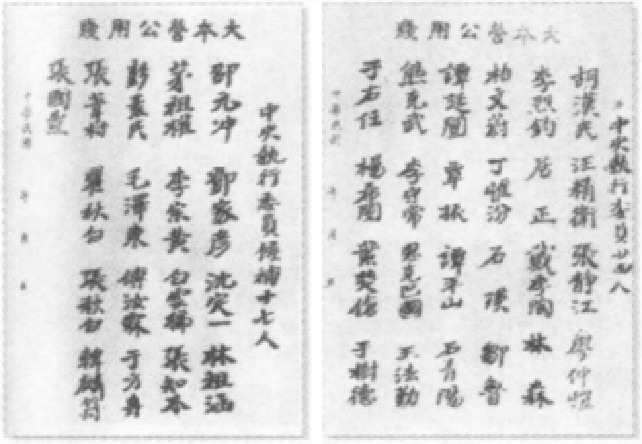 大本營公用牋
中央執行委員廿四人
胡漢民 汪精衛 張靜江 廖仲愷
李烈鈞 居正 戴季陶 林森
柏文蔚 丁惟汾 石瑛 鄒魯
譚延闓 覃振 譚平山 石青陽
熊克武 李守常 恩克巴圖 王法勤
于右任 楊希閔 葉楚傖 于樹德
中華民國 年 月 日
大本營公用牋
中央執行委員候補十七人
邵元冲 鄧家彥 沈定一 林祖涵
茅祖權 李宗黃 白雲梯 張知本
彭素民 毛澤東 傅汝霖 于方舟
張葦村 瞿秋白 張秋白 韓麟符
張國燾
中華民國 年 月 日